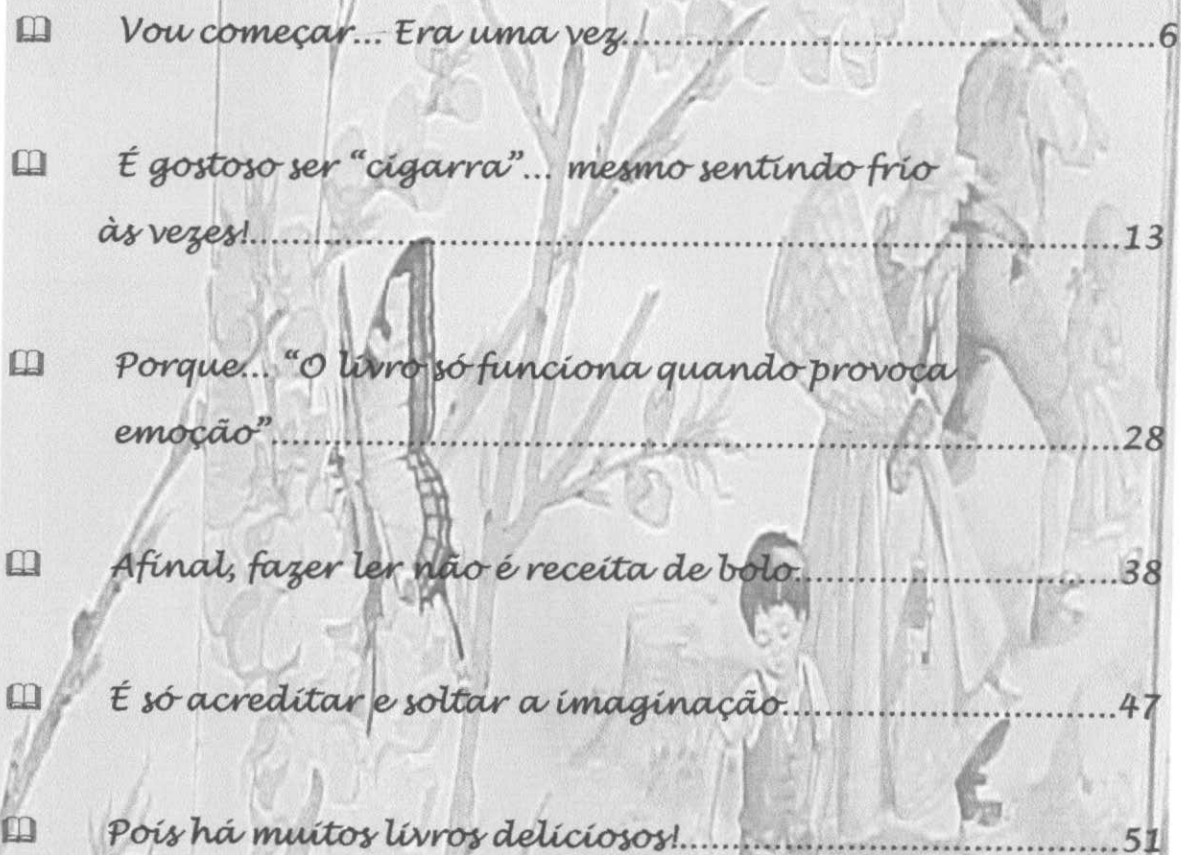 Vou começar... Era uma vez..............................................6
É gostoso ser “cigarra”... mesmo sentindo frio
às vezes!..............................................................................13
Porque... “O livro só funciona quando provoca
emoção”............................................................................28
Afinal, fazer ler não é receita de bolo..............................38
É só acreditar e soltar a imaginação.............................47
Pois há muitos livros deliciosos!........................................51